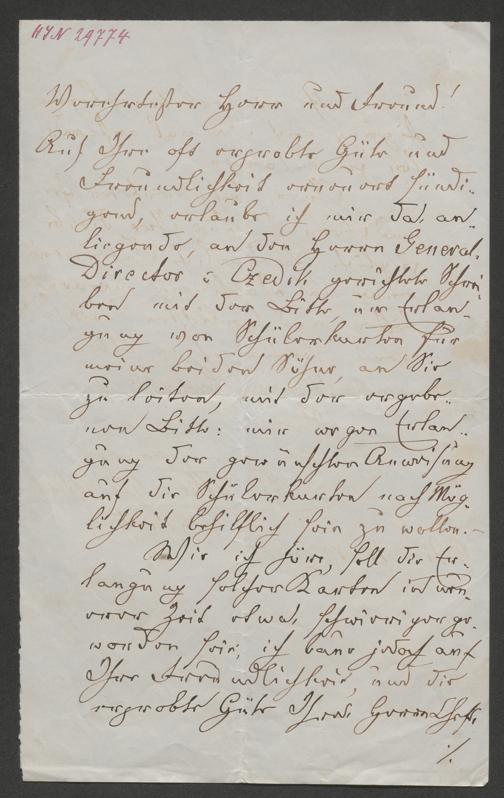 HJN 29774
Verehrtester Herr und Freund!
Auf Ihre oft erprobte Güte und
Freundlichkeit erneuert sündi-
gend, erlaube ich mir das an-
liegende, an den Herrn General-
Director v. Czedik gerichtete Schrei-
ben mit der Bitte, um Erlan-
gung von Schülerkarten für
meine beiden Söhne, an Sie
zu leiten, mit der ergebe-
nen Bitte: mir wegen Erlan-
gung der gewünschten Anweisung
auf die Schülerkarten nach Mög-
lichkeit behilflich sein zu wollen. –
Wie ich höre, soll die Er-
langung solcher Karten in neu-
erer Zeit etwas schwieriger ge-
worden sein, ich baue jedoch auf
Ihre Freundlichkeit, und die
erprobte Güte Ihres Herrn Chefs
./.